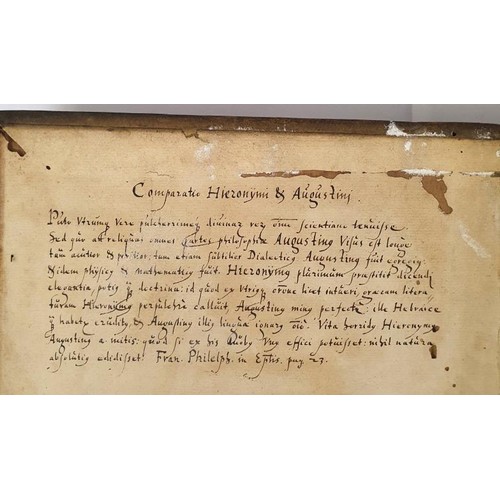 Comparatio Hieronymi & Augustini
Puto vtrumq vere pulcherrimeq diuinaz rez omē scientiam tenuisse.
Sed qua ad reliquas omnes partes philosophiæ Augustinus Visus est longe
tum acutior & peritior, tum etiam subtilior Dialecticq Augustinq fuit egregiq:
& idem physicq & mathematicq fuit. Hieronymq plurimum præstitit dicendi
elegantia, potiq qq doctrina: id quod ex vtriusq oroñe licet intueri, græcam litera-
turam Hieronymq perpulchra calluit, Augustinq minq perfecte: ille Hebraice
qq habetq eruditq, & Augustinq illiq linguæ ignarq oīo. Vita horridq Hieronymq,
Augustinq a mitis: quod si ex his duobq Vnq effici potuisset: nihil natura
absolutiq edidisset. Fran. Philelph. in Epīs. pag. 23.